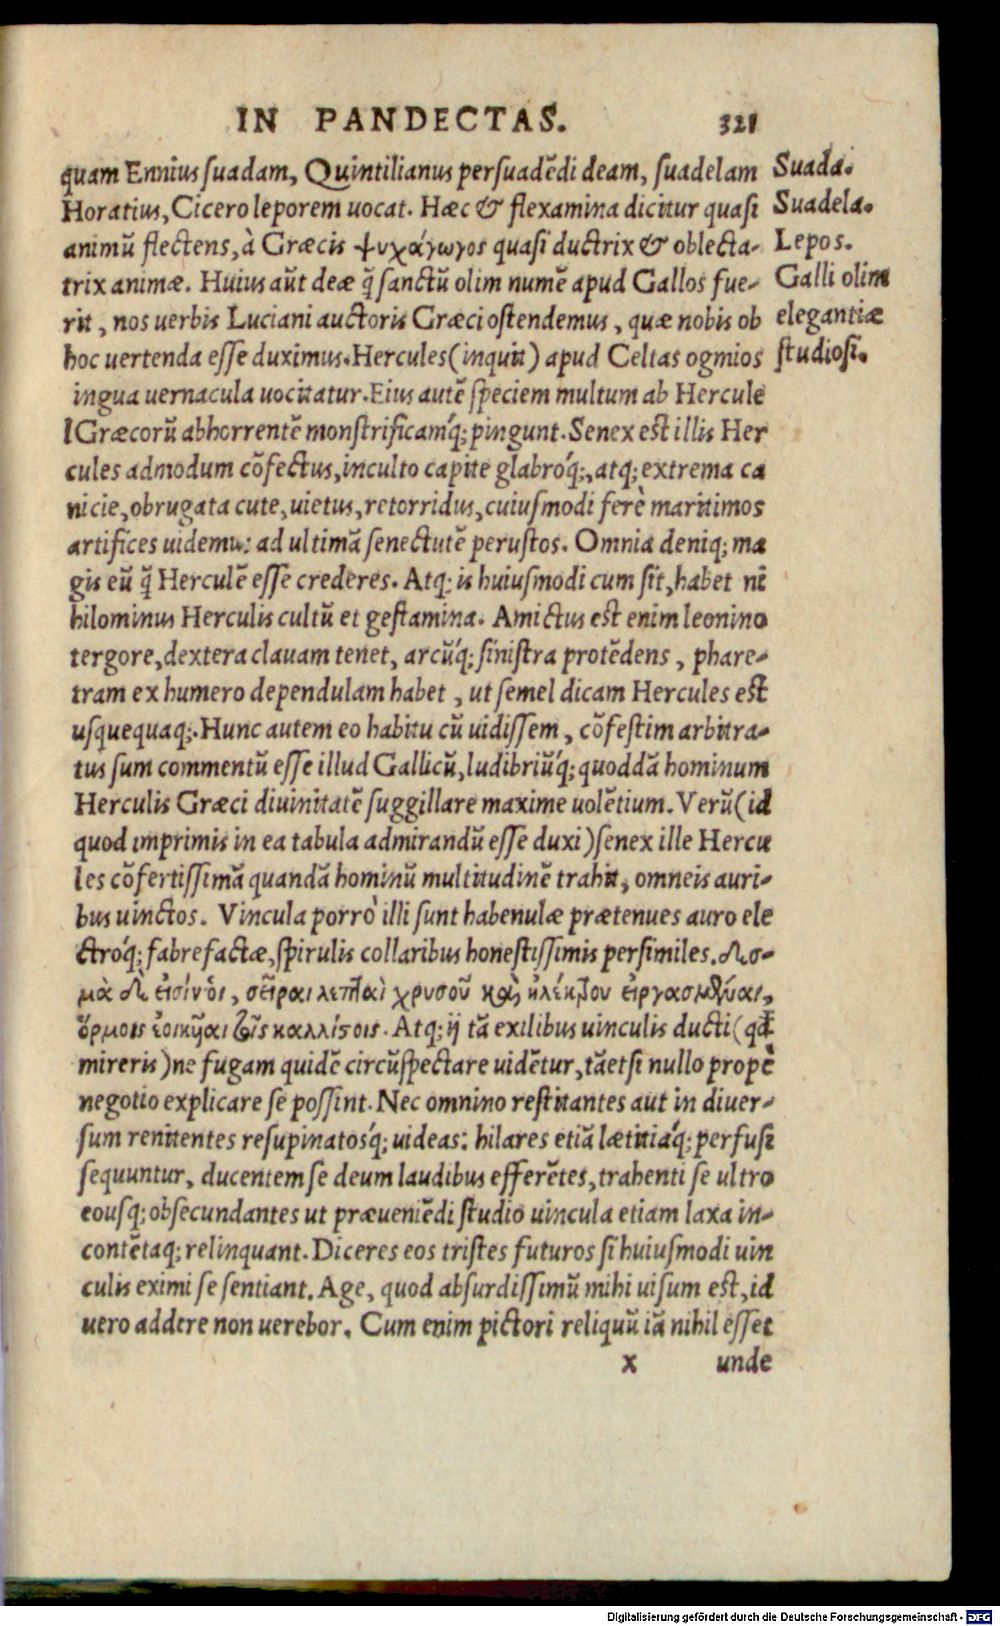 IN PANDECTAS. 321
quam Ennius suadam, Quintilianus persuadēdi deam, suadelam
Horatius, Cicero leporem uocat. Hæc & flexamina dicitur quasi
animū flectens, à Græcis ψυχάγωγος quasi ductrix & oblecta-
trix animæ. Huius aūt deæ q̄ sanctū olim numē apud Gallos fue-
rit, nos uerbis Luciani auctoris Græci ostendemus, quæ nobis ob
hoc uertenda esse duximus. Hercules (inquit) apud Celtas ogmios
ingua uernacula uocitatur. Eius autē speciem multum ab Hercule
lGræcorū abhorrentē monstrificamq́; pingunt. Senex est illis Her
cules admodum cōfectus, inculto capite glabroq́;, atq; extrema ca
nicie, obrugata cute, uietus, retorridus, cuiusmodi ferè maritimos
artifices uidemus: ad ultimā senectutē perustos. Omnia deniq; ma
gis eū q̄ Herculē esse crederes. Atq; is huiusmodi cum sit, habet ni
hilominus Herculis cultū et gestamina. Amictus est enim leonino
tergore, dextera clauam tenet, arcūq́; sinistra protēdens, phare-
tram ex humero dependulam habet, ut semel dicam Hercules est
usquequaq;. Hunc autem eo habitu cū uidissem, cōfestim arbitra-
tus sum commentū esse illud Gallicū, ludibriūq́; quoddā hominum
Herculis Græci diuinitatē suggillare maxime uolētium. Verū (id
quod imprimis in ea tabula admirandū esse duxi) senex ille Hercu
les cōfertissimā quandā hominū multitudinē trahit, omneis auri-
bus uinctos. Vincula porrò illi sunt habenulæ prætenues auro ele
ctroq́; fabrefactæ, spirulis collaribus honestissimis persimiles. δεσ-
μὰ δέ εἰσίν οἱ, σειραι λεπταὶ χρυσοῦ καὶ ἠλέκτρου εἰργασμέναι,
ὅρμοις ἐοικυῖαι τοῖς καλλίστοις. Atq; ij tā exilibus uinculis ducti (qđ
mireris) ne fugam quidē circūspectare uidētur, tāetsi nullo propè
negotio explicare se possint. Nec omnino restitantes aut in diuer-
sum renitentes resupinatosq́; uideas: hilares etiā lætitiaq́; perfusi
sequuntur, ducentem se deum laudibus efferētes, trahenti se ultro
eousq; obsecundantes ut præueniēdi studio uincula etiam laxa in-
contētaq; relinquant. Diceres eos tristes futuros si huiusmodi uin
culis eximi se sentiant. Age, quod absurdissimū mihi uisum est, id
uero addere non uerebor. Cum enim pictori reliquū iā nihil esset
x unde
Suada.
Suadela.
Lepos.
Galli olim
elegantiæ
studiosi.
Digitalisierung gefördert durch die Deutsche Forschungsgemeinschaft - DFG